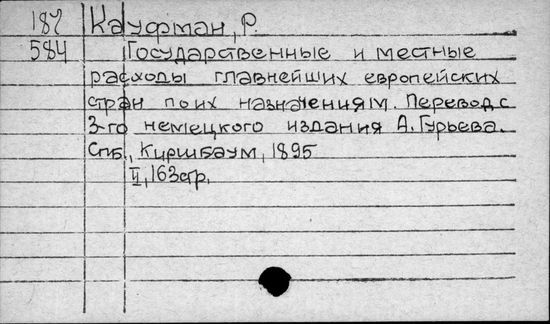 187 Кауфман, Р.
584 Государственные и местные
расходы главнейших европейских
стран по их назначениям. Перевод с
3-го немецкого издания А. Гурьева.
Спб., Киршбаум, 1895
II, 163 стр.